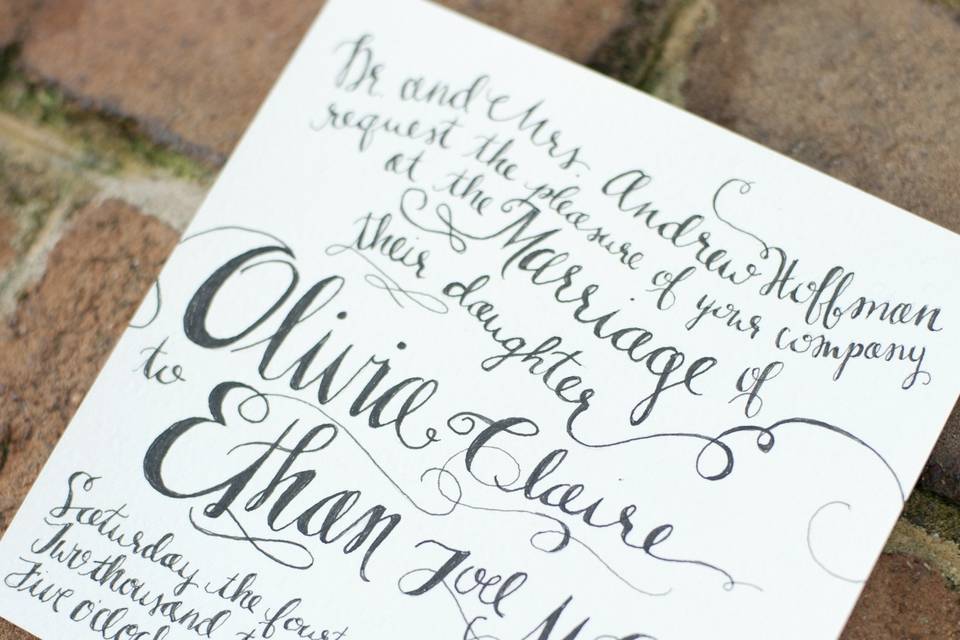 Dr. and Mrs. Andrew Hoffman
request the pleasure of your company
at the Marriage of
their daughter
Olivia Claire
to
Ethan Joel
Saturday the
Two thousand
Five o'clock